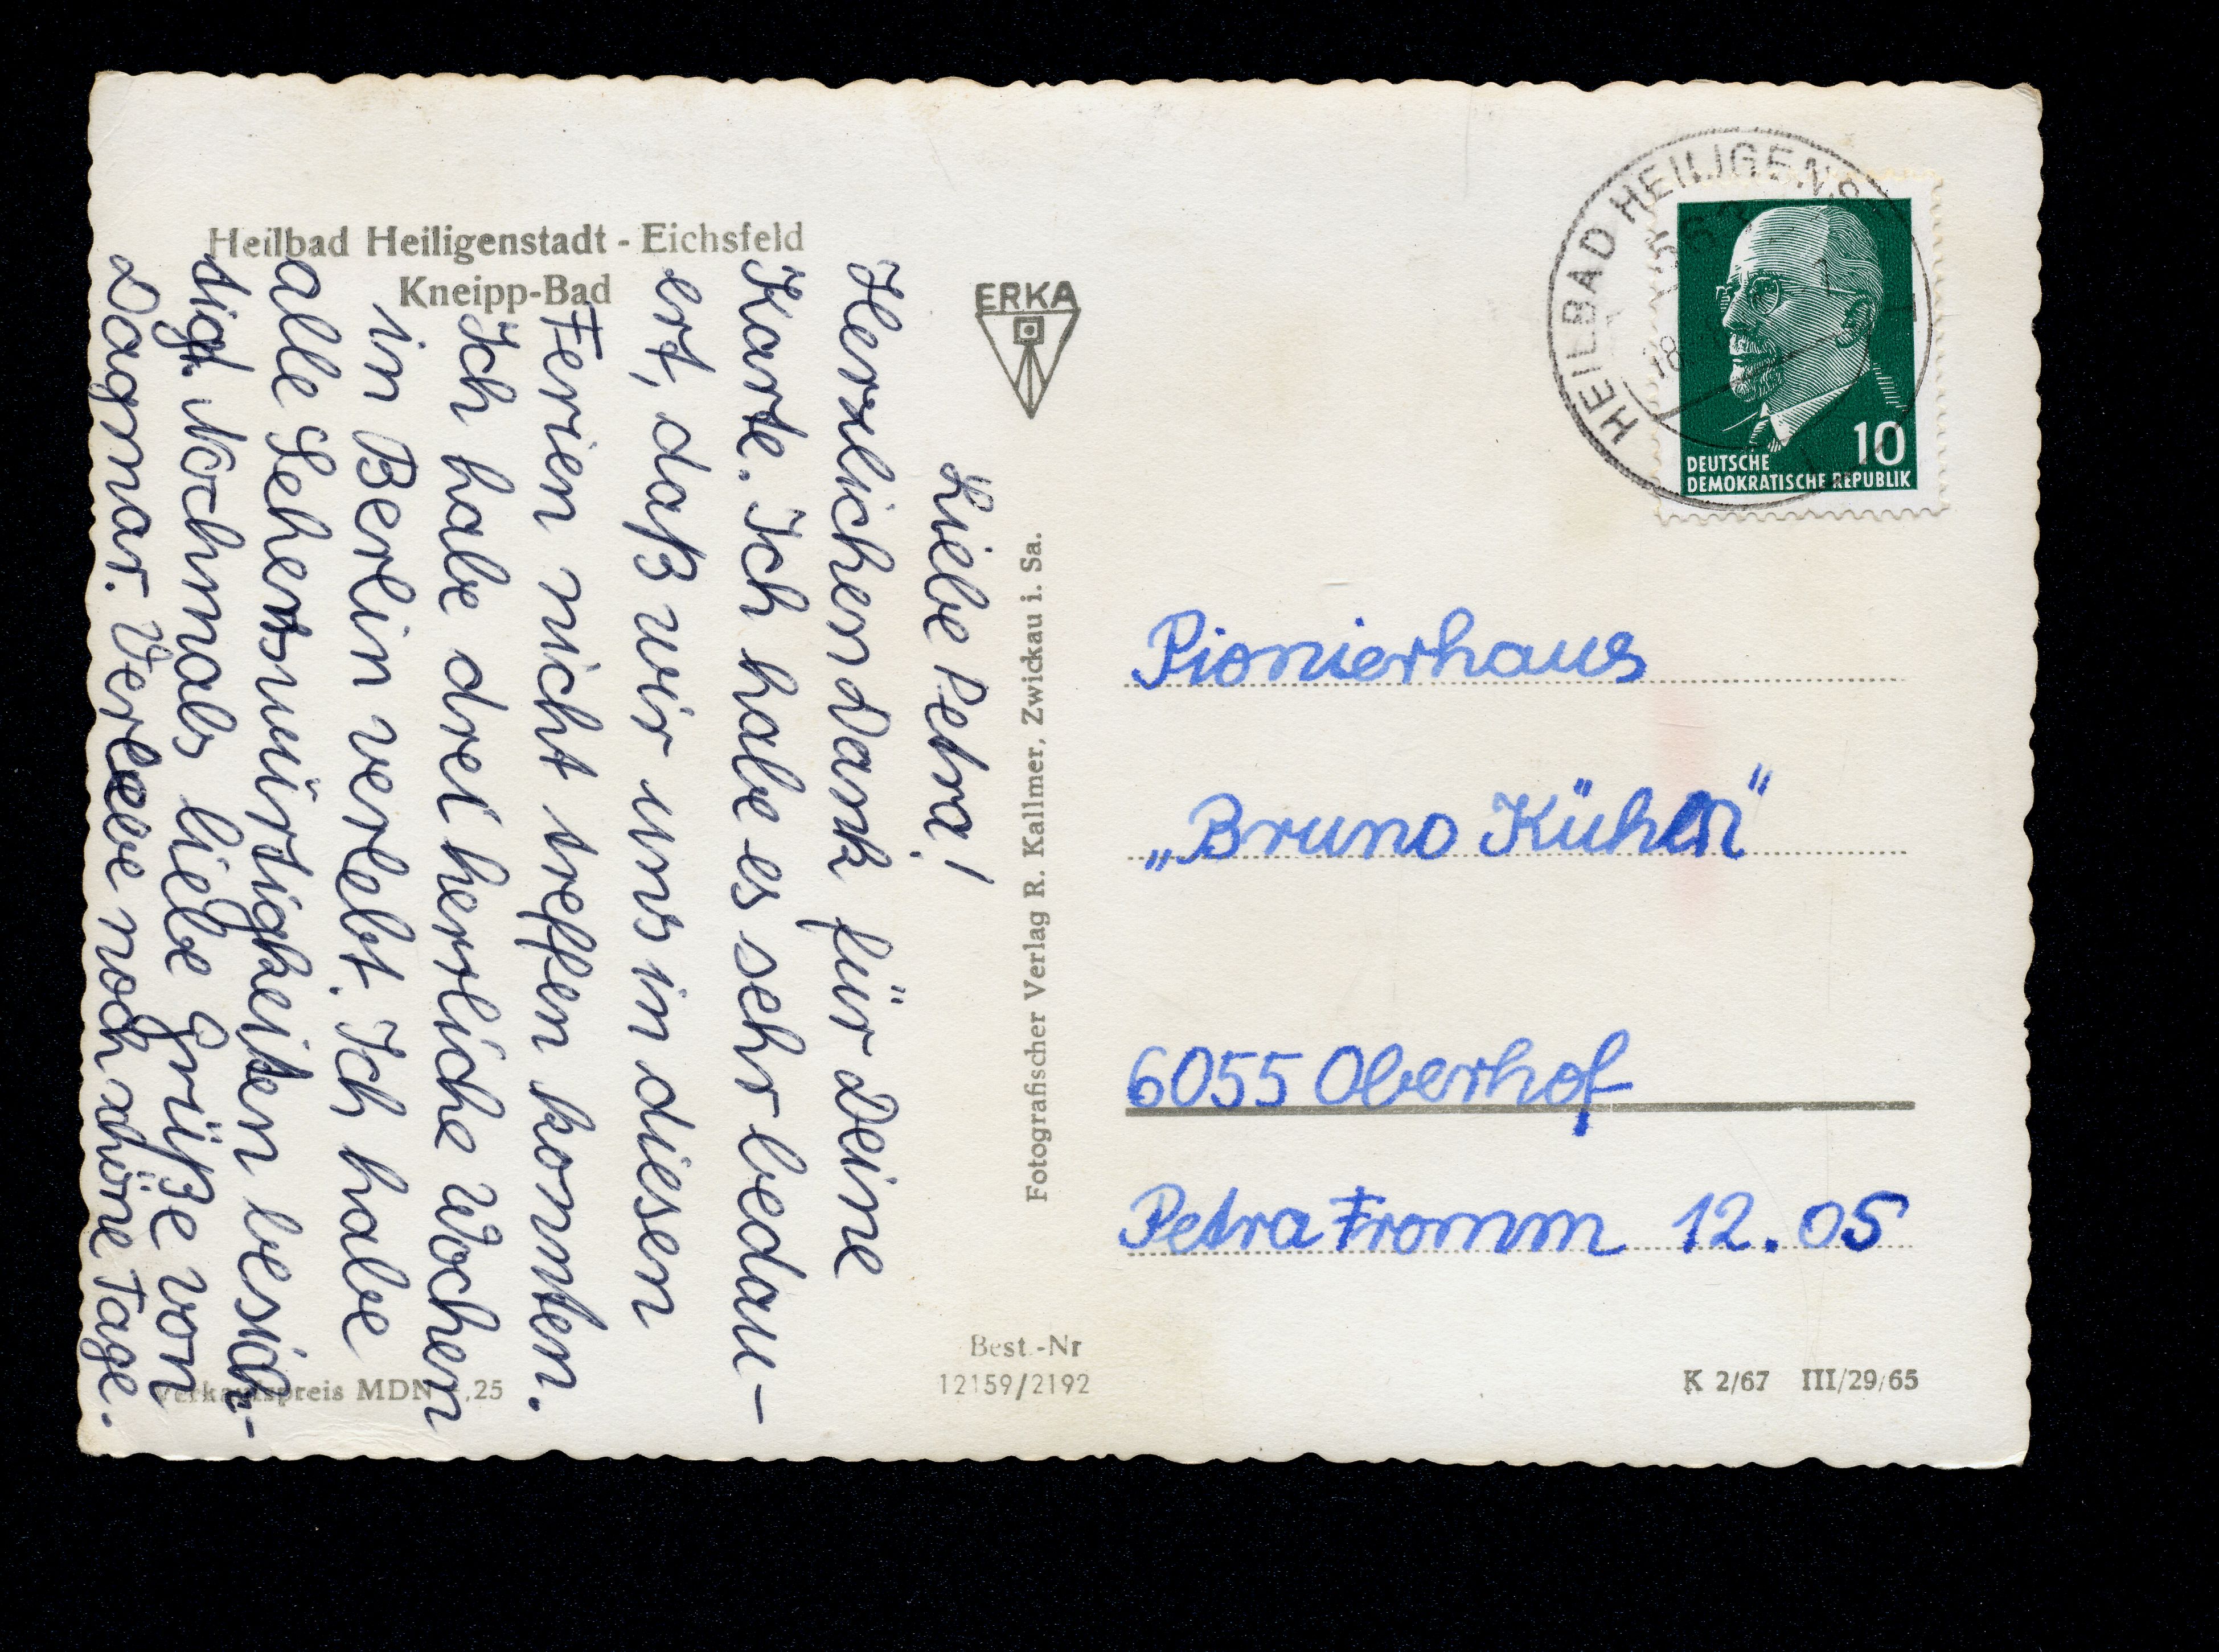 Heilbad Heiligenstadt - Eichsfeld
Kneipp-Bad
Liebe Petra!
Herzlichen Dank für Deine
Karte. Ich habe es sehr bedau-
ert, daß wir uns in diesen
Ferien nicht treffen konnten.
Ich habe drei herrliche Wochen
in Berlin verlebt. Ich habe
alle Sehenswürtigkeiten besich-
tigt. Nochmals liebe Grüße von
Dagmar. Verlebe noch schöne Tage.
Verkaufspreis MDN ,25
ERKA
Fotografischer Verlag R. Kallmer, Zwickau i. Sa.
Best.-Nr
12159/2192
HEILBAD HEILIGENS
18
10
DEUTSCHE
DEMOKRATISCHE REPUBLIK
Pionierhaus
„Bruno Kühn"
6055 Oberhof
Petra Fromm 12.05
K 2/67 III/29/65